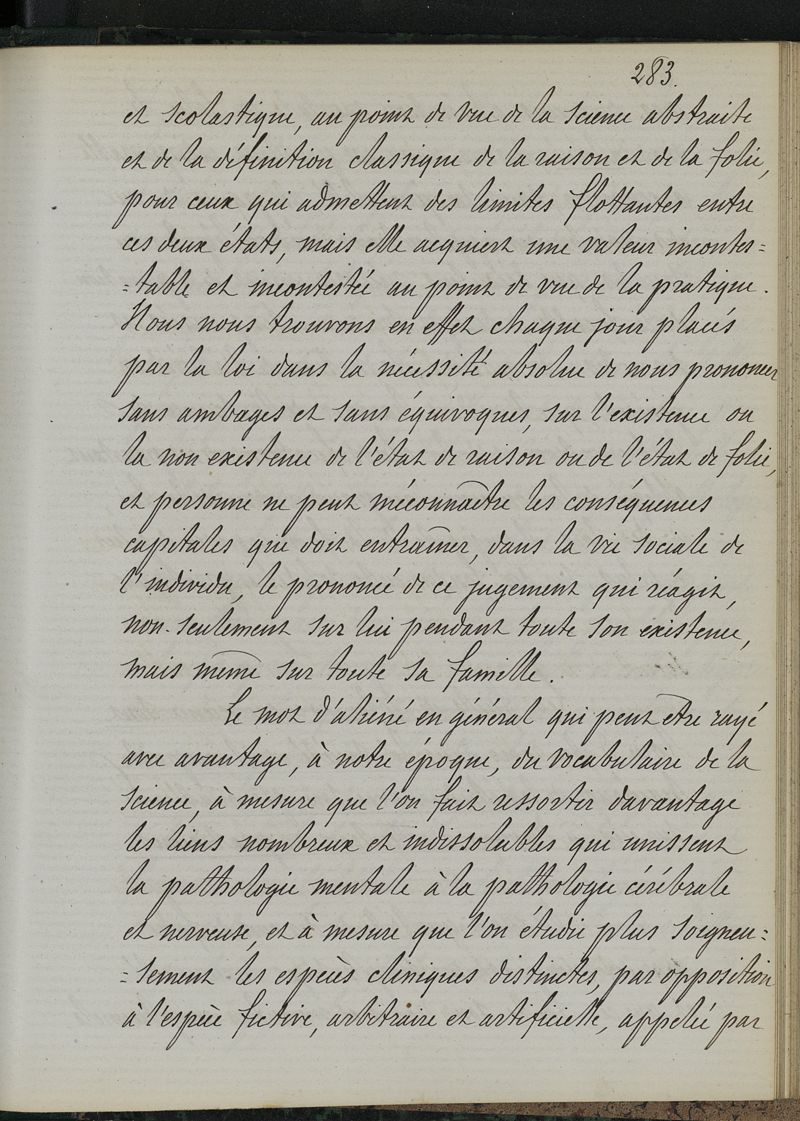 283.
et scolastique, au point de vue de la science abstraite
et de la définition classique de la raison et de la folie,
pour ceux qui admettent des limites flottantes entre
ces deux états, mais elle acquiert une valeur incontes=
=table et incontestée au point de vue de la pratique.
Nous nous trouvons en effet chaque jour placés
par la loi dans la nécessité absolue de nous prononcer
sans ambages et sans équivoques, sur l'existence ou
la non existence de l'état de raison ou de l'état de folie,
et personne ne peut méconnaître les conséquences
capitales que doit entraîner, dans la vie sociale de
l'individu, le prononcé de ce jugement qui réagit,
non-seulement sur lui pendant toute son existence,
mais même sur toute sa famille.
Le mot d'aliéné en général qui peut être rayé
avec avantage, à notre époque, du vocabulaire de la
science, à mesure que l'on fait ressortir davantage
les liens nombreux et indissolubles qui unissent
la pathologie mentale à la pathologie cérébrale
et nerveuse, et à mesure que l'on étudie plus soigneu=
=sement les espèces cliniques distinctes, par opposition
à l'espèce fictive, arbitraire et artificielle, appelée par